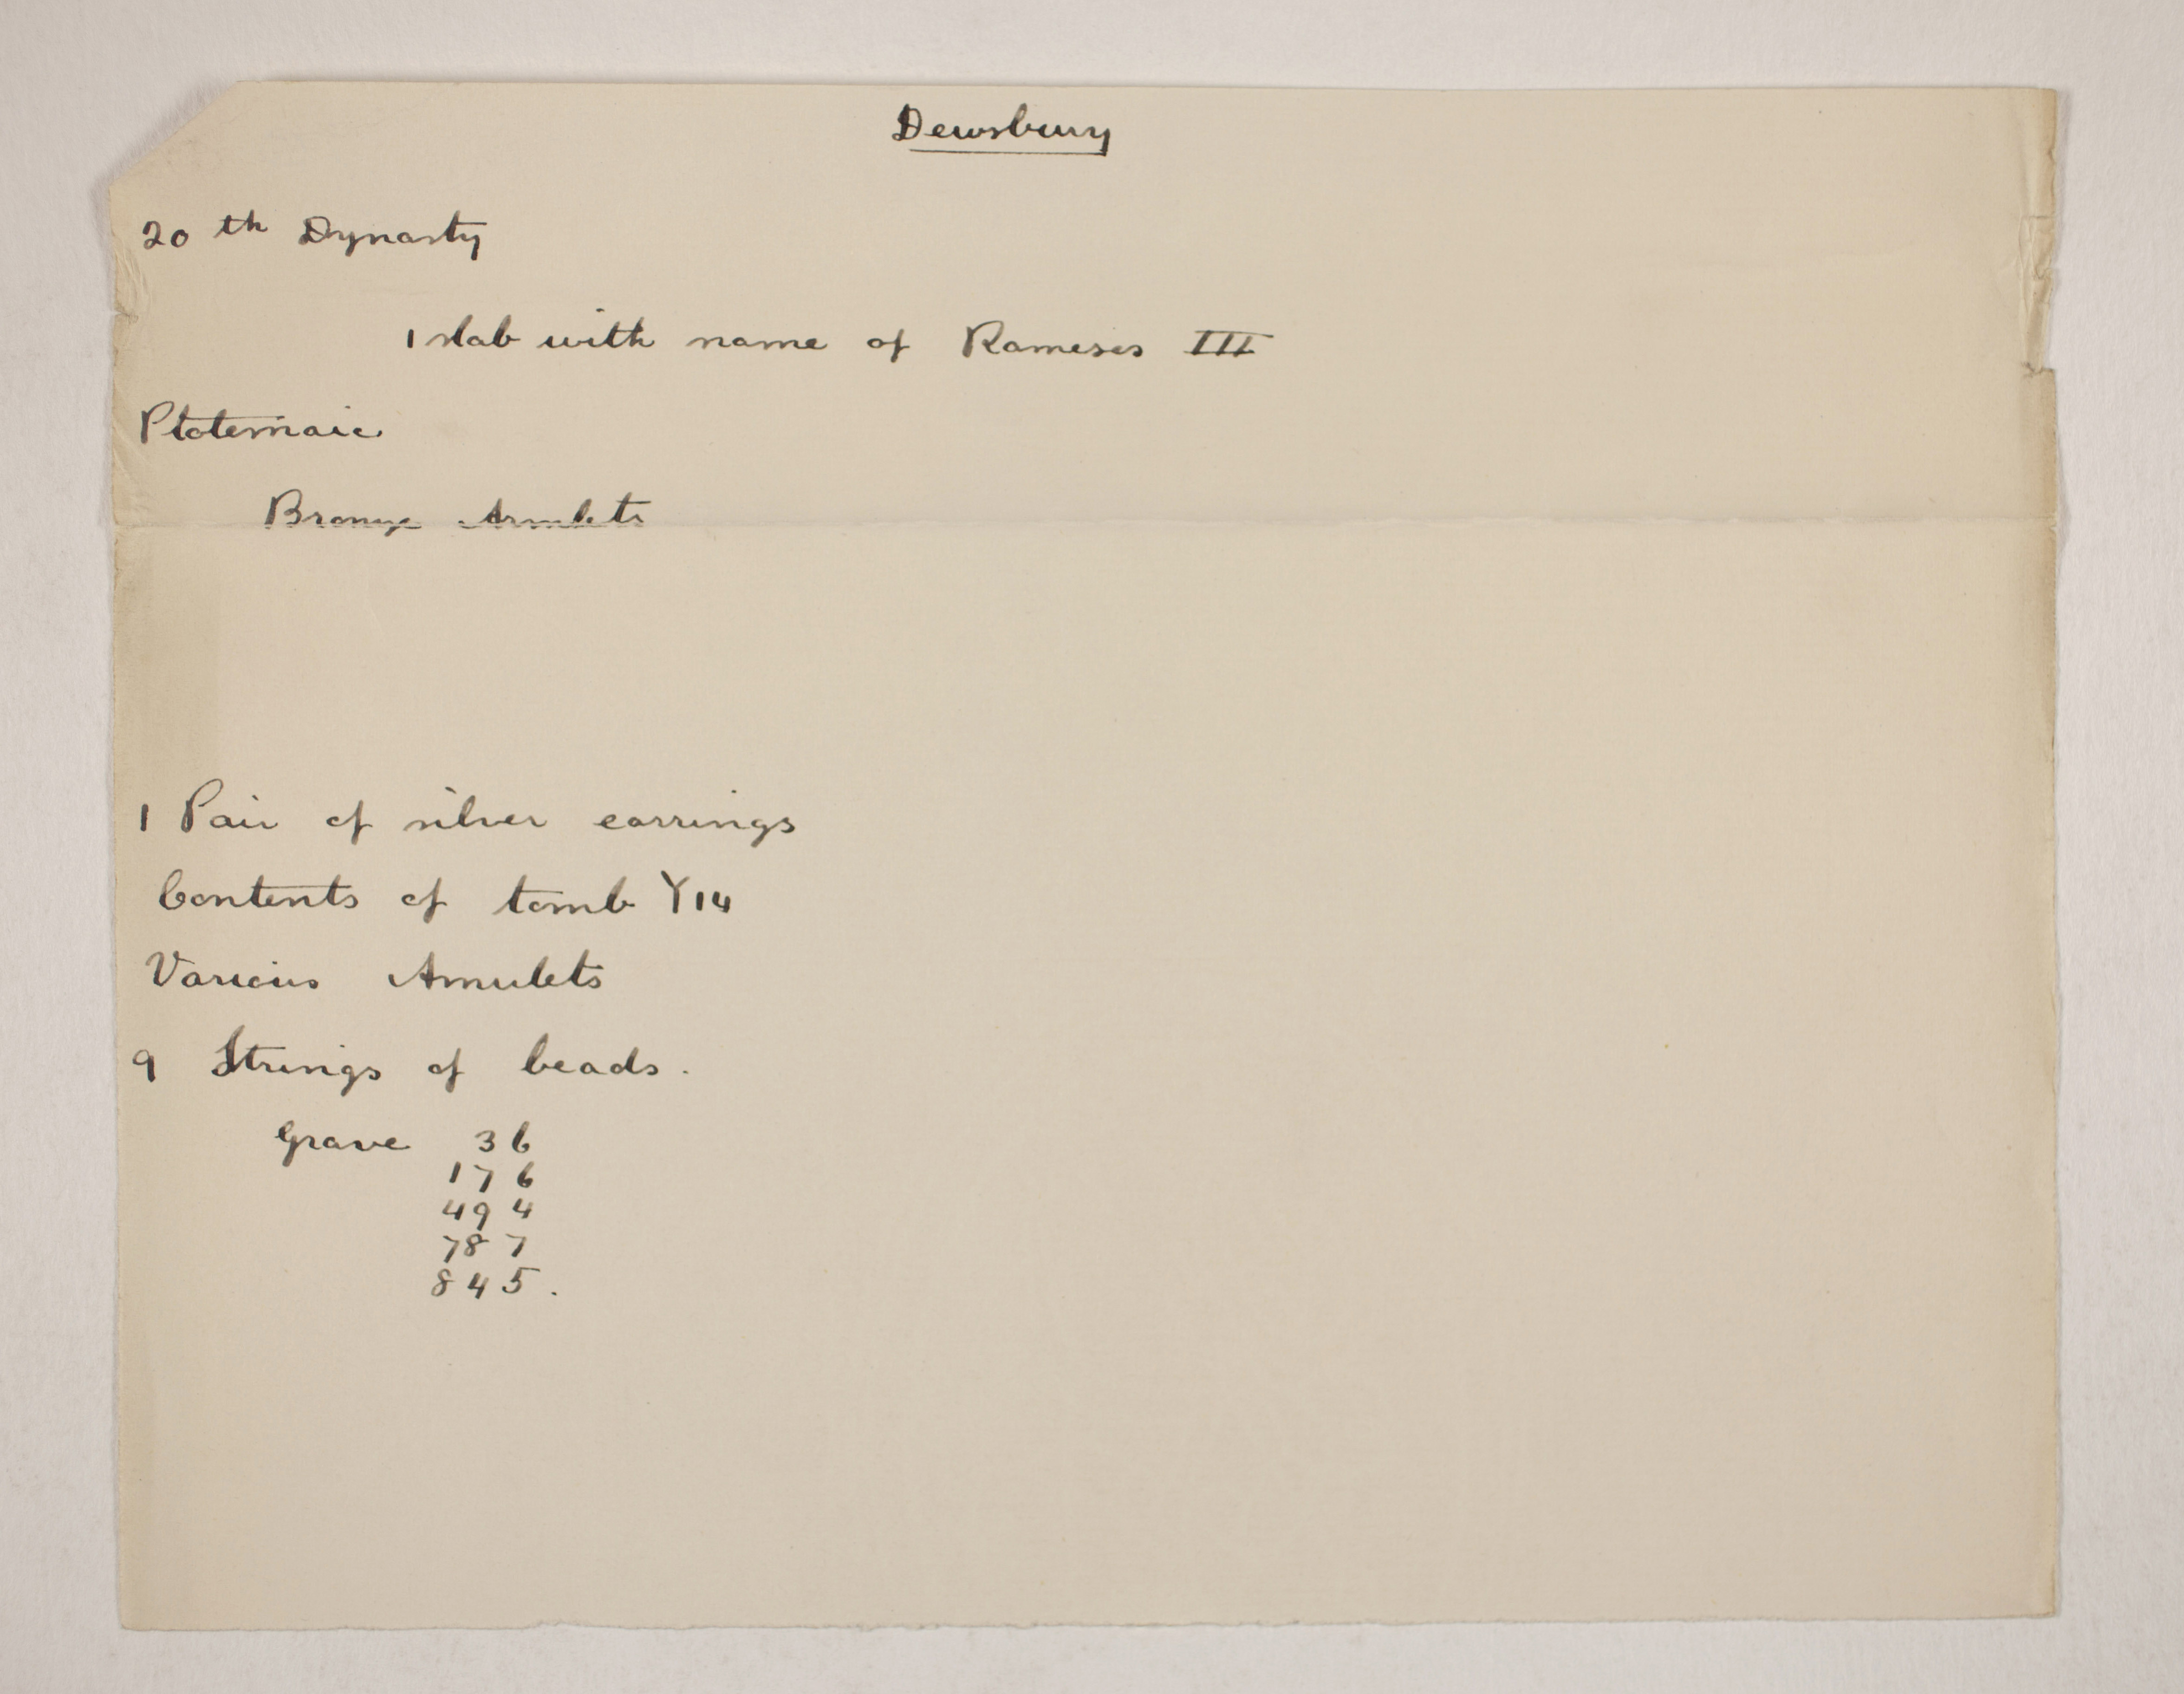 Dewsbury
20th Dynasty
1 slab with name of Rameses III
Ptolemaic
Bronze Armlets
1 Pair of silver earrings
Contents of tomb Y14
Various Amulets
9 Strings of beads.
Grave 36
176
494
787
845.